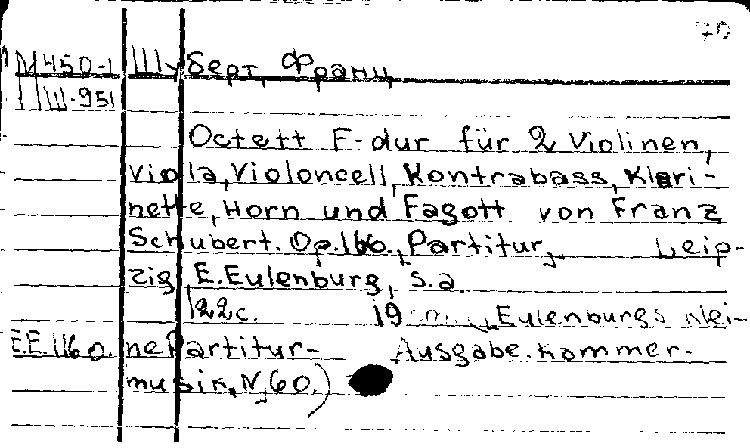 70
М450-1 Шуберт, Франц
Ш-951
Octett F-dur für 2 Violinen,
Viola, Violoncell, Kontrabass, Klari-
nette, Horn und Fagott von Franz
Schubert. Op.166., Partitur, Leip-
zig, E. Eulenburg, s.a.
122c. 19 Eulenburgs klei-
E.E.1160. ne Partitur- Ausgabe. Kammer-
musik, N, 60.)